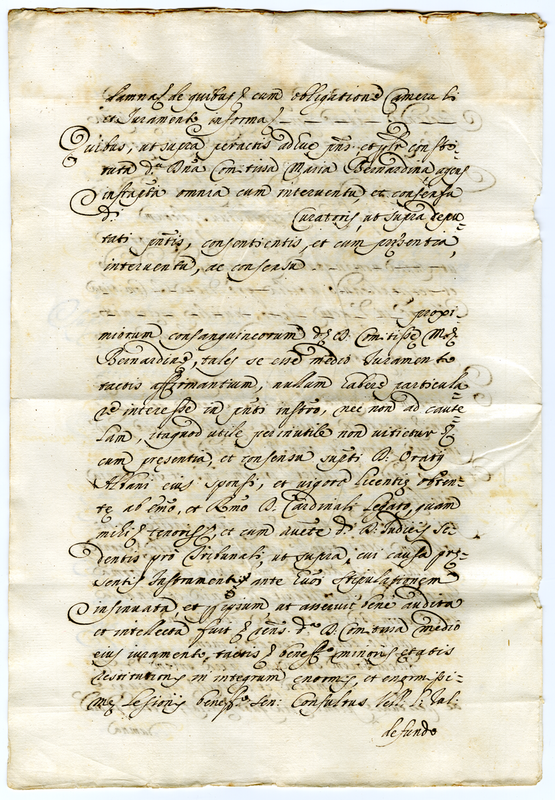 damna, de quibus, et cum obligatione Camerali
et Juramento in forma
Quibus, ut supra peractis adeoque pns. et plr consti=
tuta d.a Dna Comitissa Maria Bernardina agens
infrapta omnia cum interventu et consensu
D. Curatoris, ut supra depu=
tati pntis, consentientis, et cum presentia,
interventu, ac consensu
proxi
miorum consanguineorum d. D. Comitisse Mae
Bernardine, tales se esse medio Juramento
tactis affirmantium, nullum habere particula
re interesse in pnti instro, nec non ad caute=
lam, itaquod utile per inutile non vitietur et
cum presentia, et consensu supti D. Oratij
Albani eius sponsi, et vigore licentie obten=
te ab Emo, et Rmo D. Cardinali Legato, quam
mihi tenoris, et cum aute d. D. Judicis se=
dentis pro Tribunali, ut supra, cui causa pre=
sentis Instrumenti ante eius stipulationem
insinuata, et p ipsum, ut asseruit bene audita
et intellecta fuit sens. d.a D. Comitissa medio
eius iuramento, tactis beneff.o minoris etatis
restitutionis in integrum enormis, et enormissi=
me Lesionis beneff.o Sen: Consultus Vell.
defundo